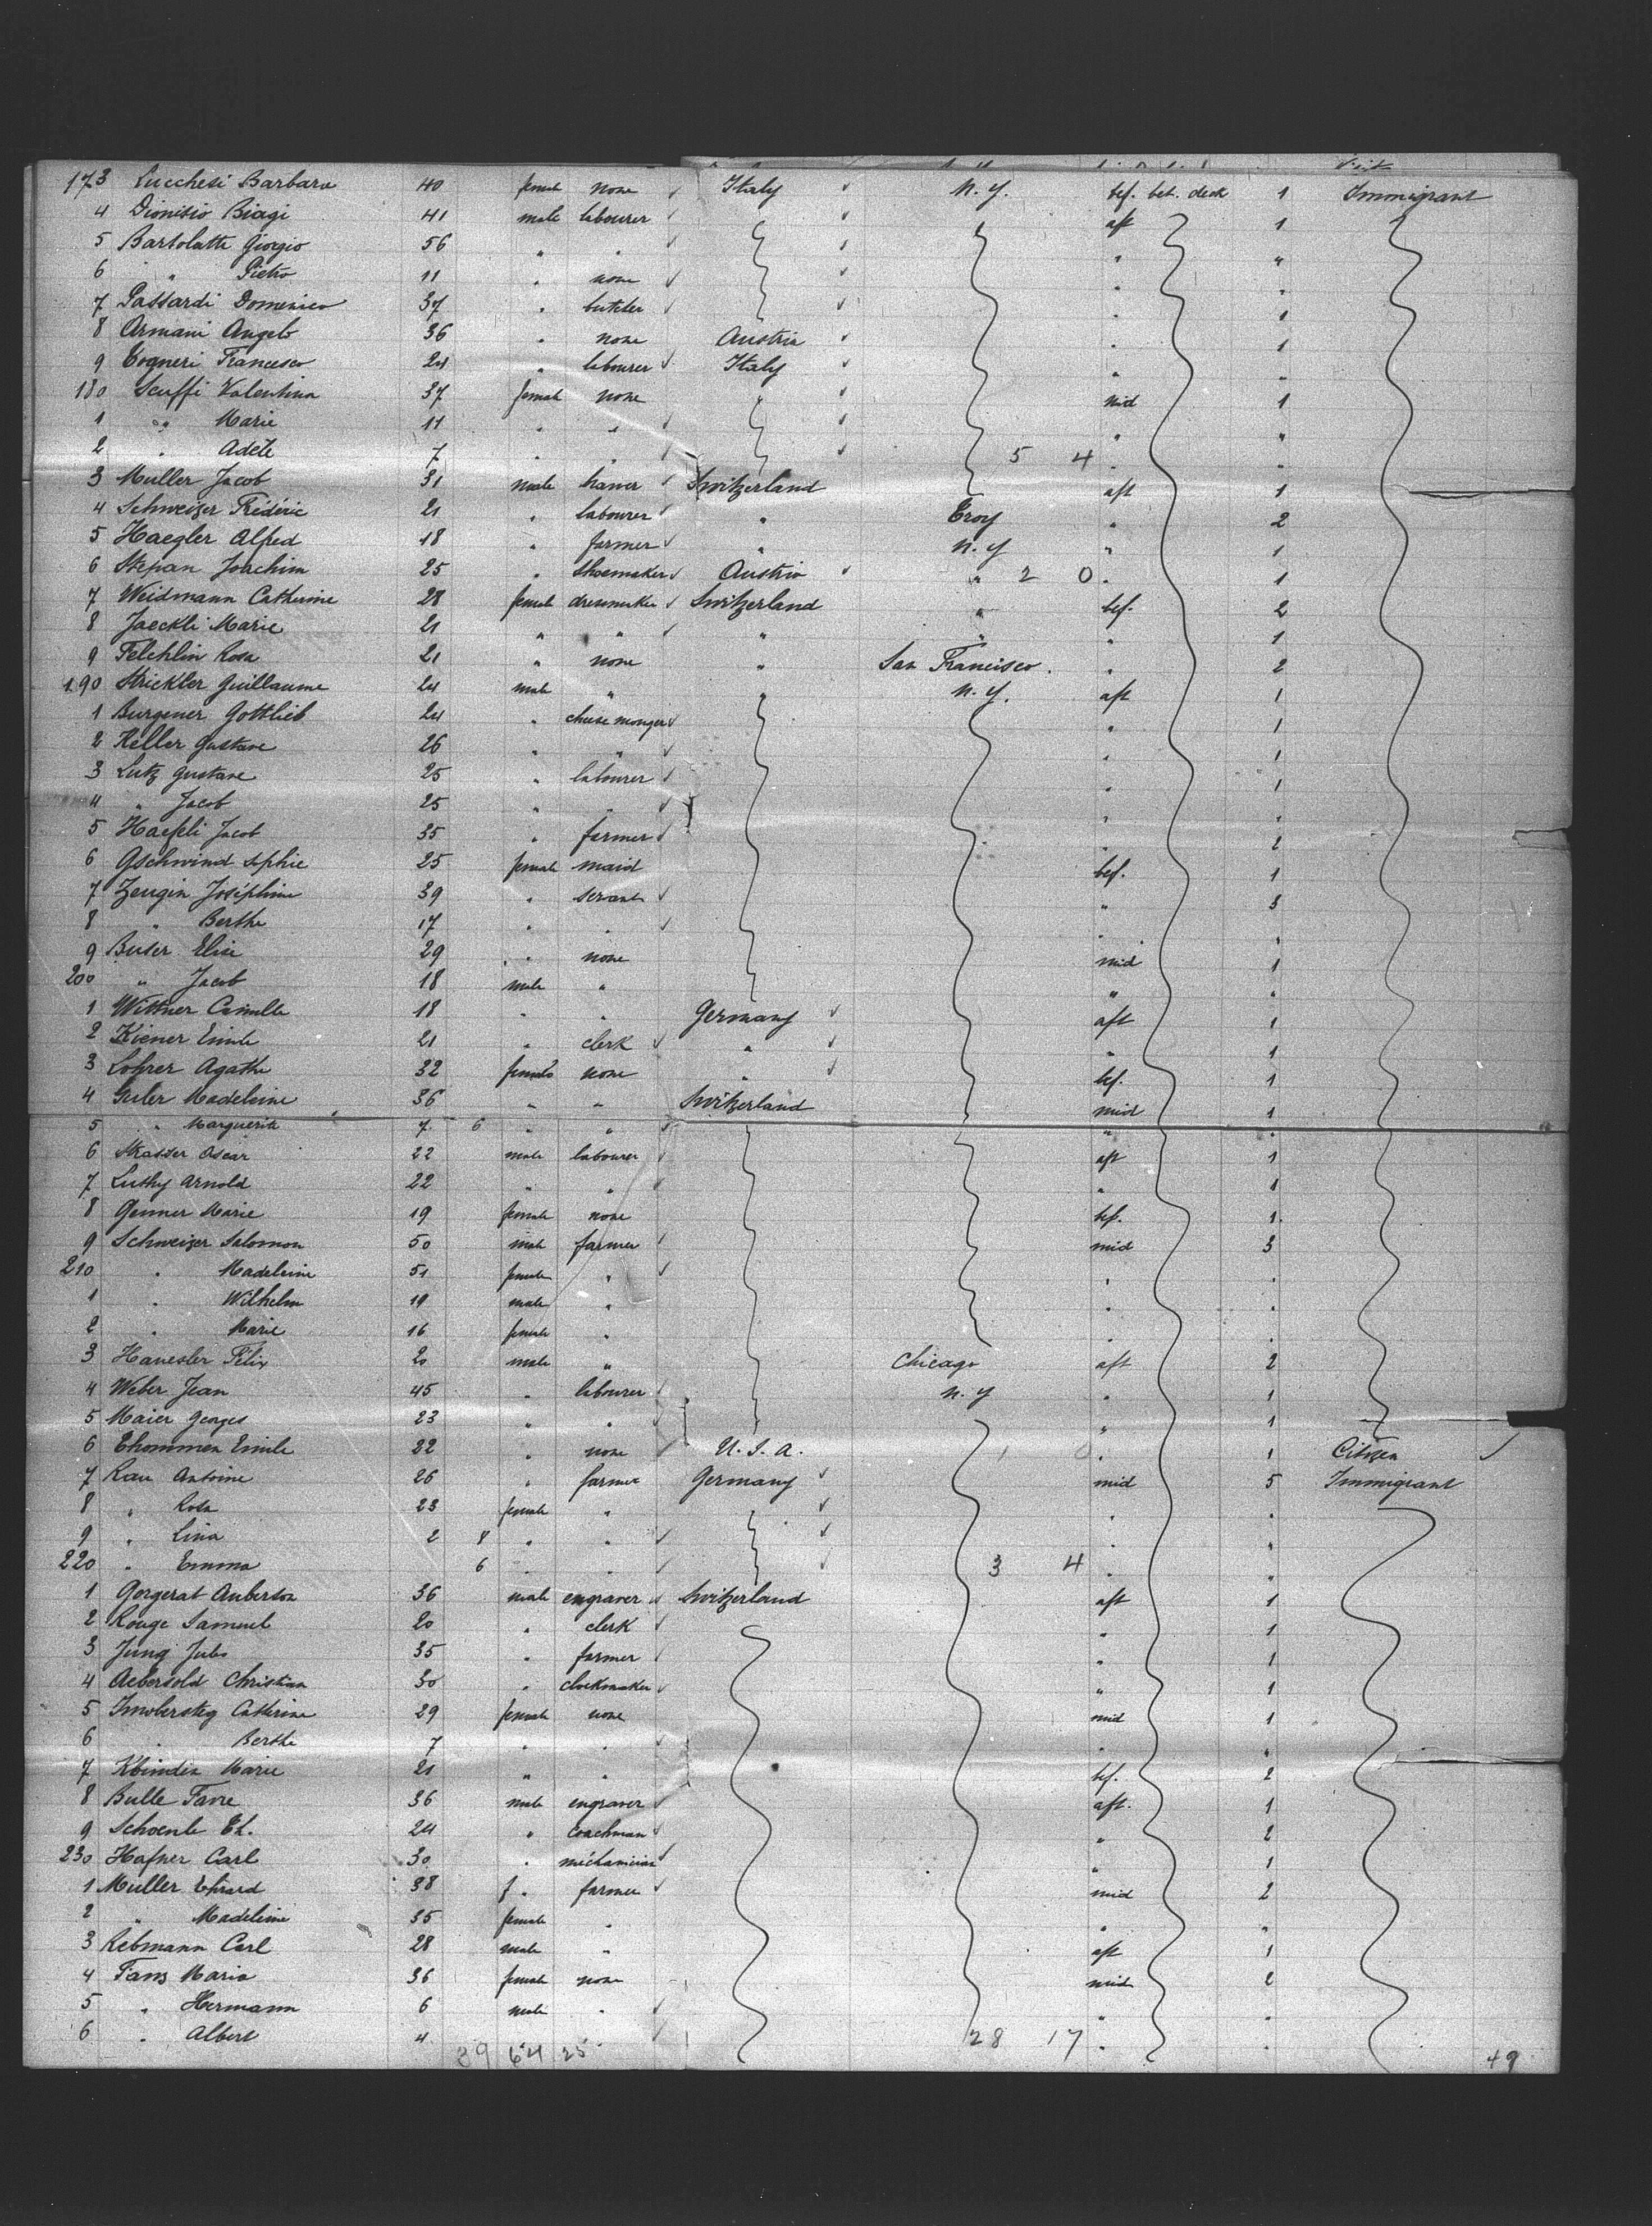 173 Lucchesi Barbara 40 female none Italy N.Y. bef. bet. deck 1 Immigrant
4 Dionisio Biagi 41 male labourer aft 1
5 Bartolatti Giorgio 56 " " " "
6 " Pietro 11 " none " "
7 Passardi Domenico 37 " butcher " 1
8 Armani Angelo 36 " none Austria " 1
9 Cogneri Francesco 24 " labourer Italy " "
180 Scuffi Valentina 37 female none " mid 1
1 " Marie 11 " " " "
2 " Adele 7 " " 5 4 " "
3 Muller Jacob 31 male Switzerland aft 1
4 Schweizer Fréderic 21 " labourer " Troy " 2
5 Haegler Alfred 18 " farmer " N.Y " 1
6 Stepan Joachim 25 " shoemaker Austria " 2 0 " 1
7 Weidmann Catherine 28 female dressmaker Switzerland " bef. 2
8 Jaeckli Marie 21 " " " " " 1
9 Felchlin Rosa 21 " none " San Francisco. " 2
190 Strickler Guillaume 24 male " " N.Y. aft 1
1 Burgener Gottlieb 24 " cheese monger " 1
2 Keller Gustave 26 " " " 1
3 Lutz Gustave 25 " labourer " 1
4 " Jacob 25 " " " "
5 Haefeli Jacob 35 " farmer " 2
6 Gschwind Sophie 25 female maid bef. 1
7 Zeugin Joséphine 39 " servant " 3
8 " Berthe 17 " " " "
9 Buser Elise 29 " none mid 1
200 " Jacob 18 male " " "
1 Wittner Camille 18 " " Germany aft 1
2 Kiener Emile 21 " clerk " " 1
3 Lohrer Agathe 32 female none " bef. 1
4 Guler Madeleine 36 " " Switzerland mid 1
5 " Marguerite 7 6 " " " "
6 Strasser Oscar 22 male labourer aft 1
7 Luthy Arnold 22 " " " 1
8 Genner Marie 19 female none bef. 1
9 Schweizer Salomon 50 male farmer mid 3
210 " Madeleine 51 female " " "
1 " Wilhelm 19 male " " "
2 " Marie 16 female " " "
3 Hauesler Félix 20 male " Chicago aft 2
4 Weber Jean 45 " labourer N.Y " 1
5 Maier Georges 23 " " " 1
6 Thommen Emile 22 " none U.S.A. 1 0 " 1 Citizen
7 Rau Antoine 26 " farmer Germany mid 5 Immigrant
8 " Rosa 23 female " " "
9 " Lina 2 8 " " " "
220 " Emma 6 " " 3 4 " "
1 Gorgerat Auberson 36 male engraver Switzerland aft 1
2 Rouge Samuel 20 " clerk " 1
3 Jung Jules 35 " farmer " 1
4 Aebersold Christian 30 " clockmaker " 1
5 Imobersteg Catherine 29 female none mid 1
6 " Berthe 7 " " " "
7 Marie 21 " " bef. 2
8 Bulle Favre 36 male engraver aft. 1
9 Schoenle 24 " coachman " 2
230 Hafner Carl 30 " méchanician " 1
1 Muller 38 " farmer mid 2
2 " Madeleine 35 female " " "
3 Rebmann Carl 28 male " aft 1
4 Maria 36 female none mid 2
5 " Hermann 6 male " " "
6 " Albert 4 28 17 " "
39 64 25 49